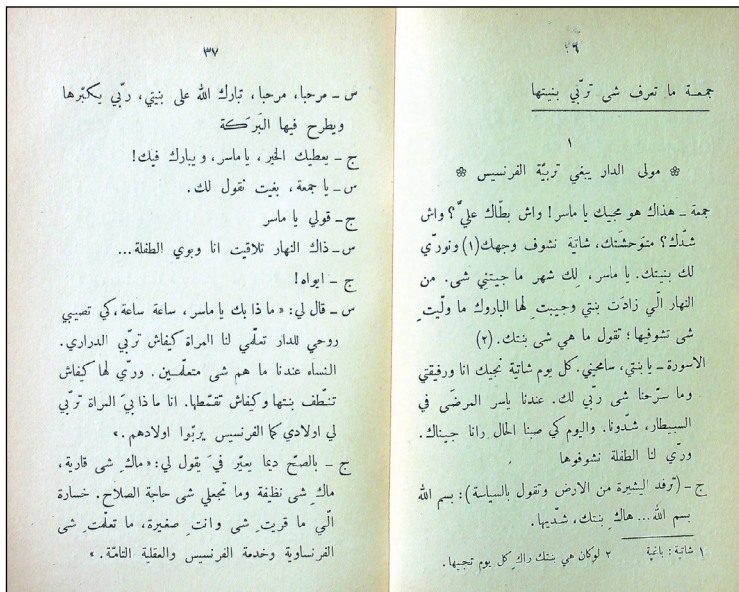 ٣٦
جمعـة ما تعرف شى تربّي بنيتها
١
مولى الدار يبغي تربيّة الفرنسيس
جمعة – هذاك هو مجيك يا ماسر! واش بطّاك عليّ؟ واش
شدّك؟ متوَحشتك، شاتية نشوف وجهك (١) ونورّي
لك بنيتك. يا ماسر، لِك شهر ما جيتني شى. من
النهار الّي زادَت بنتي وجيبتِ لها الباروك ما ولّيتِ
شى تشوفيها؛ تقول ما هي شى بنتك. (٢)
الاسورة – يا بنتي، سامحيني. كل يوم شاتية نجيك انا ورفيقتي
وما سرّحنا شى ربّي لك. عندنا ياسر المرضَى في
السبيطار، شدّونا. واليوم كي صبنا الحال رانا جيناك.
ورّي لنا الطفلة نشوفوها
ج – (ترفد البشيرة من الارض وتقول بالسياسة): بسم الله
بسم الله... هاكِ بنتك، شدّيها.
١ شاتية: باغية ٢ لوكان هي بنتك راكِ كل يوم تجيها.
٣٧
س – مرحبا، مرحبا، تبارك الله على بنيتي، ربّي يكبّرها
ويطرح فيها البَرَكة
ج – يعطيك الخير، يا ماسر، ويبارك فيك!
س – يا جمعة، بغيت نقول لك.
ج – قولي يا ماسر
س – ذاك النهار تلاقيت انا وبوي الطفلة...
ج – ايواه!
س – قال لي: «ما ذا بك يا ماسر، ساعة ساعة، كي تصيبي
روحي للدار تعلّمي لنا المراة كيفاش تربّي الدراري.
النساء عندنا ما هم شى متعلّمـين. ورّي لها كيفاش
تنـظّف بنتها وكيفاش تقمّطها. انا ما ذا بيَ المراة تربّي
لي اولادي كما الفرنسيس يربّوا اولادهم.»
ج – بالصحّ ديما يعيّر فيَّ يقول لي: «ماكِ شى قارية،
ماكِ شى نظيفة وما تجعلي شى حاجة الصلاح. خسارة
الّي ما قريتِ شى وانتِ صغيرة، ما تعلّمتِ شى
الفرنساوية وخدمة الفرنسيس والعقلية التامّة.»